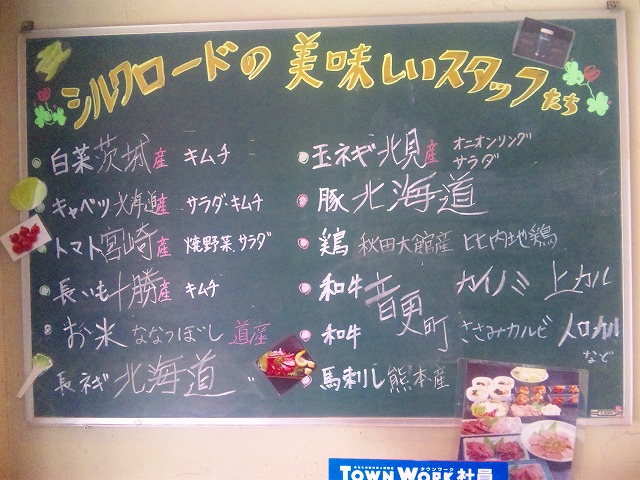 シルクロードの美味しいスタッフたち
白菜 茨城産 キムチ
キャベツ 北海道産 サラダ・キムチ
トマト 宮崎産 焼野菜、サラダ
長いも 十勝産 キムチ
お米 ななつぼし 道産
長ネギ 北海道 〃
玉ネギ 北見産 オニオンリング
サラダ
豚 北海道
鶏 秋田大館産 比内地鶏
和牛 音更町 カイノミ 上カル
和牛 ささみカルビ
など
馬刺し 熊本産
TOWN WORK 社員
タウンワーク